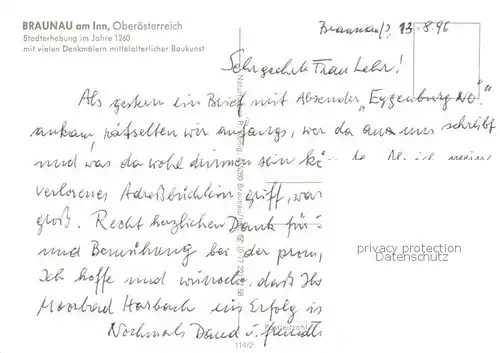 BRAUNAU am Inn, Oberösterreich
Stadterhebung im Jahre 1260
mit vielen Denkmälern mittelalterlicher Baukunst
Braunau/I, 13.8.96
Sehr geehrte Frau Lehr!
Als gestern ein Brief mit Absender "Eggenburg NÖ."
ankam, rätselten wir anfangs, wer da aus uns schreibt
und was da wohl drinnen sein
verlorenes Adreßbüchlein griff, war
groß. Recht herzlichen Dank für
und Bemühung bei der prom
Ich hoffe und wünsche, daß Ihr
Moorbad Harbach ein Erfolg is
Nochmals Dank u. freundl
privacy protection
Datenschutz
Postleitzahl
114/2